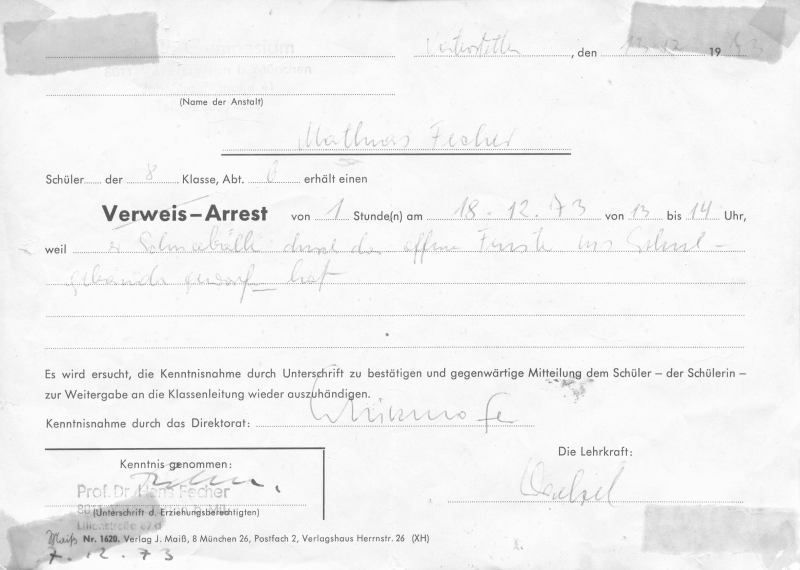 , den 13.12. 1973
(Name der Anstalt)
Mathias Fecher
Schüler der 8 Klasse, Abt. erhält einen
Verweis–Arrest von 1 Stunde(n) am 18.12.73 von 13 bis 14 Uhr,
weil er Schneebälle durch das offene Fenster ins Schul-
gebäude geworfen hat
Es wird ersucht, die Kenntnisnahme durch Unterschrift zu bestätigen und gegenwärtige Mitteilung dem Schüler – der Schülerin –
zur Weitergabe an die Klassenleitung wieder auszuhändigen.
Kenntnisnahme durch das Direktorat:
Die Lehrkraft:
Kenntnis genommen:
Prof. Dr. Hans Fecher
(Unterschrift d. Erziehungsberechtigten)
Maiß Nr. 1620. Verlag J. Maiß, 8 München 26, Postfach 2, Verlagshaus Herrnstr. 26 (XH)
7.12.73